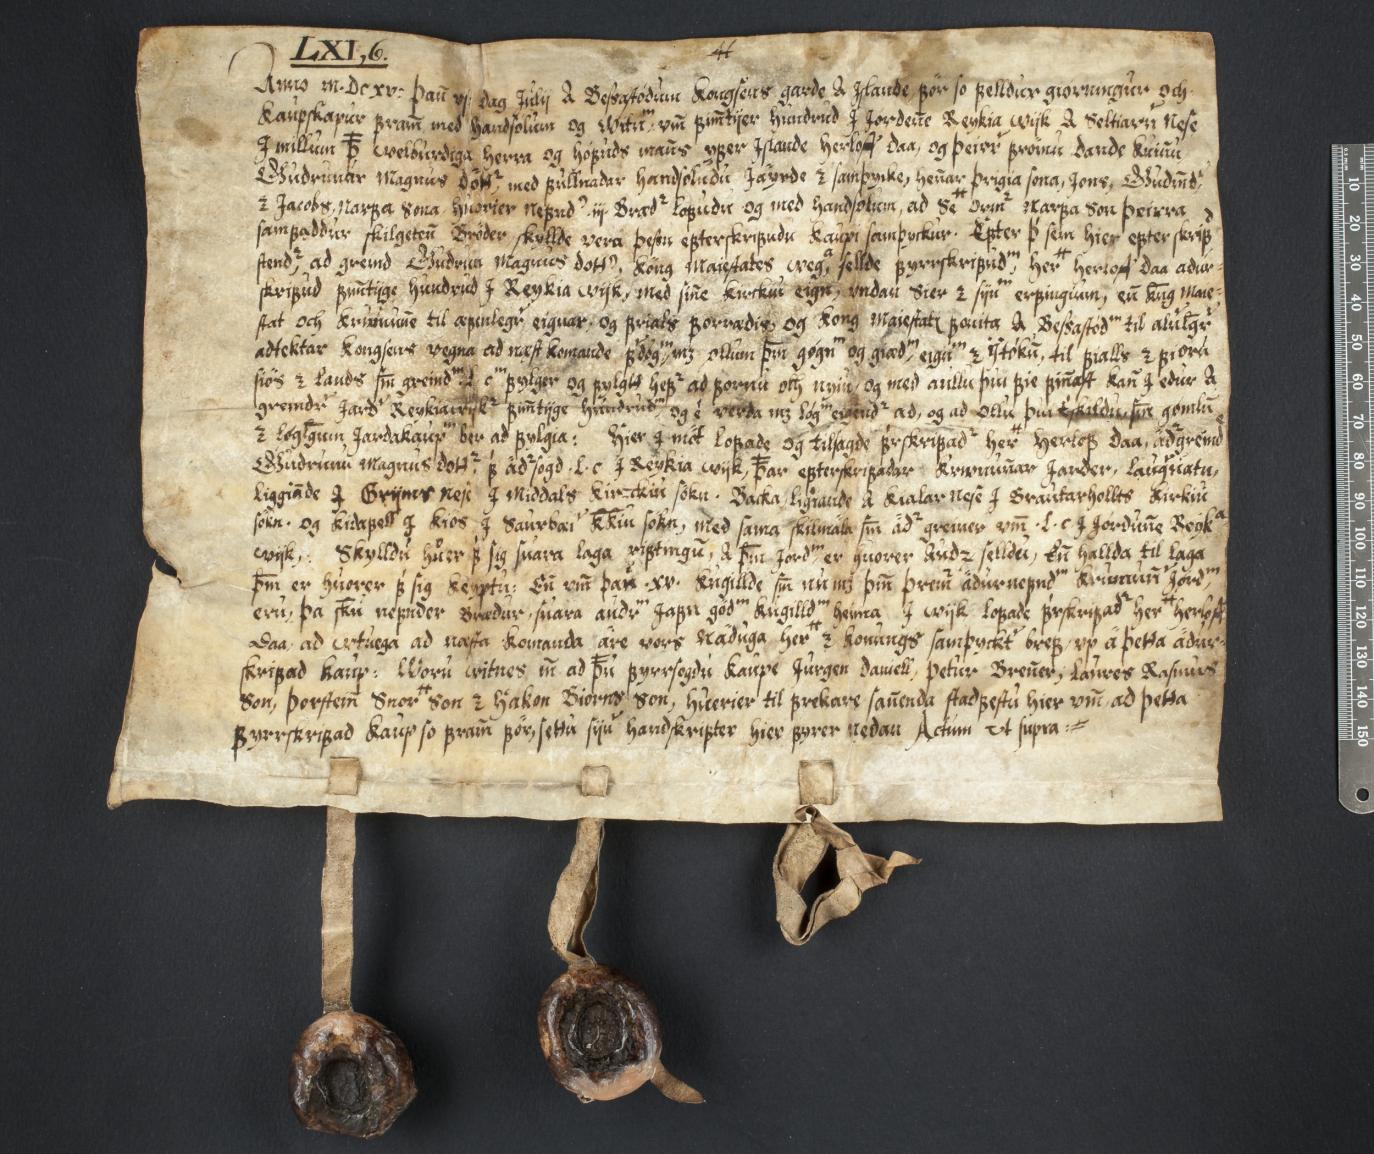 LXI,6.
Anno m.Dcxv: þañ vj: dag Julij A Bessastödum Kongsens garde A Jslande, fór so felldur giörningur och
Kaupskapur framm med handsölum og witum, vm fimtijer hundrud J Jördeñe Reykia wijk A Seltiarñ Nese
J millum Þess welburdiga herra og höfuds mans yfer Jslande herlof Daa, og þeirr fromu dande kuiñu
Gudrunar Magnus dött, med fullnadar handsöludu Jáyrde z samþycke, heñar þrigia sona, Jons, Gudmd
z Jacobs, Narfa sona huorier nefnd iij Brædr lofudu og med handsölum, ad Se Orm Narfa Son þeirra
samfaddur skilgeteñ Bröder skyllde vera þessu efterskrifudu Kaupi samþyckur. Efter þ sem hier efter skrif
stend, ad greind Gudrun Magnus dotter, Kong Maiestates vegna sellde fyrrskrifud her herlof Daa adur
skrifud fimtijge hundrud J Reykia wijk, med siñe kirckiu eign, vndan Sier z sijn erfingium, eñ Kong Maie-
stat och Krununne til æfinlegr eignar, og frials forrædis, og Kong Maiestatz fouita A Bessastöd til alulegr
adtektar Kongsens vegna ad næst komande fardög, mz ollum þm gögn og giæd, eign z jtöku, til fialls z fioru
siös z lands sm greind L c fylger og fylgt hefr ad fornu och nyiu, og med aullu þui fie fiñast kañ J edur A
greindr Jard Reykiawijk fimtijge hundrud, og é verda mz lög eigend ad, og ad ollu þui óskildu, sm gömlu
z löglgum Jardakaup ber ad fylgia: Hier J mót lofade og tilsagde fyrskrifad her Herlof Daa, ádgreind
Gudrunu Magnus dott, f ádrsögd L c J Reykia wijk, Þar efterskrifadar Krunuñar Jarder, Laugñatn,
liggiande J Grijms nese J Middals Kirckiu sökn. Backa liggiande A Kialar nese J Brautarhollts Kirkiu
sökn. og Kidafell J Kiös J Saurbæi kkiu sökn, med sama skilmála sm ádr greiner vm L c J Jorduñe Reyk
wijk,: Skylldu huer f sig suara laga riftingu, A þm Jord, er huorer Audz selldeu, Eñ hallda til laga
þm er huorer f sig Keyptu: Eñ vm þau xv. Kugillde sm nu mz þm þrem ádurnefnd Krunuñ Jörd,
eru, þa sku nefnder Brædur suara audr Jafn göd Kugilld heima J wijk lofade fyrskrifad her herlof
Daa, ad vtuega ad næsta Komanda áre vors Náduga her z Konungs samþyckt bref, vp á þetta ádur-
skrifad Kaup: Woru witnes m ad þu fyrrsögdu Kaupe Jurgen Daniell, Petur Breuer, Laures Rasmus
Son, Þorstein Snor Son z Hákon Biörns Son, huerier til frekare sañenda stadfestu hier vm, ad þetta
fyrrskrifad Kaup so framm för, settu sijn handskrifter hier fyrer nedan Actum vt supra